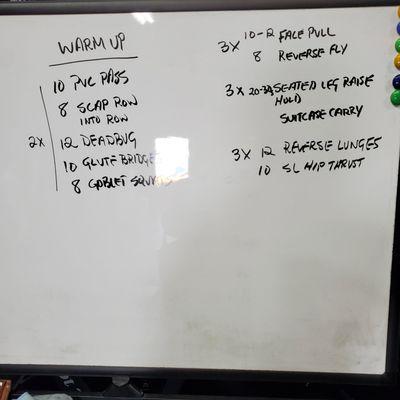 WARM UP
10 PVC PASS
8 SCAP ROW
INTO ROW
2x
12 DEADBUG
10 GLUTE BRIDGES
8 GOBLET SQUATS
3x 10-12 FACE PULL
8 REVERSE FLY
3x 20-30 SEATED LEG RAISE
HOLD
SUITCASE CARRY
3x 12 REVERSE LUNGES
10 SL HIP THRUST